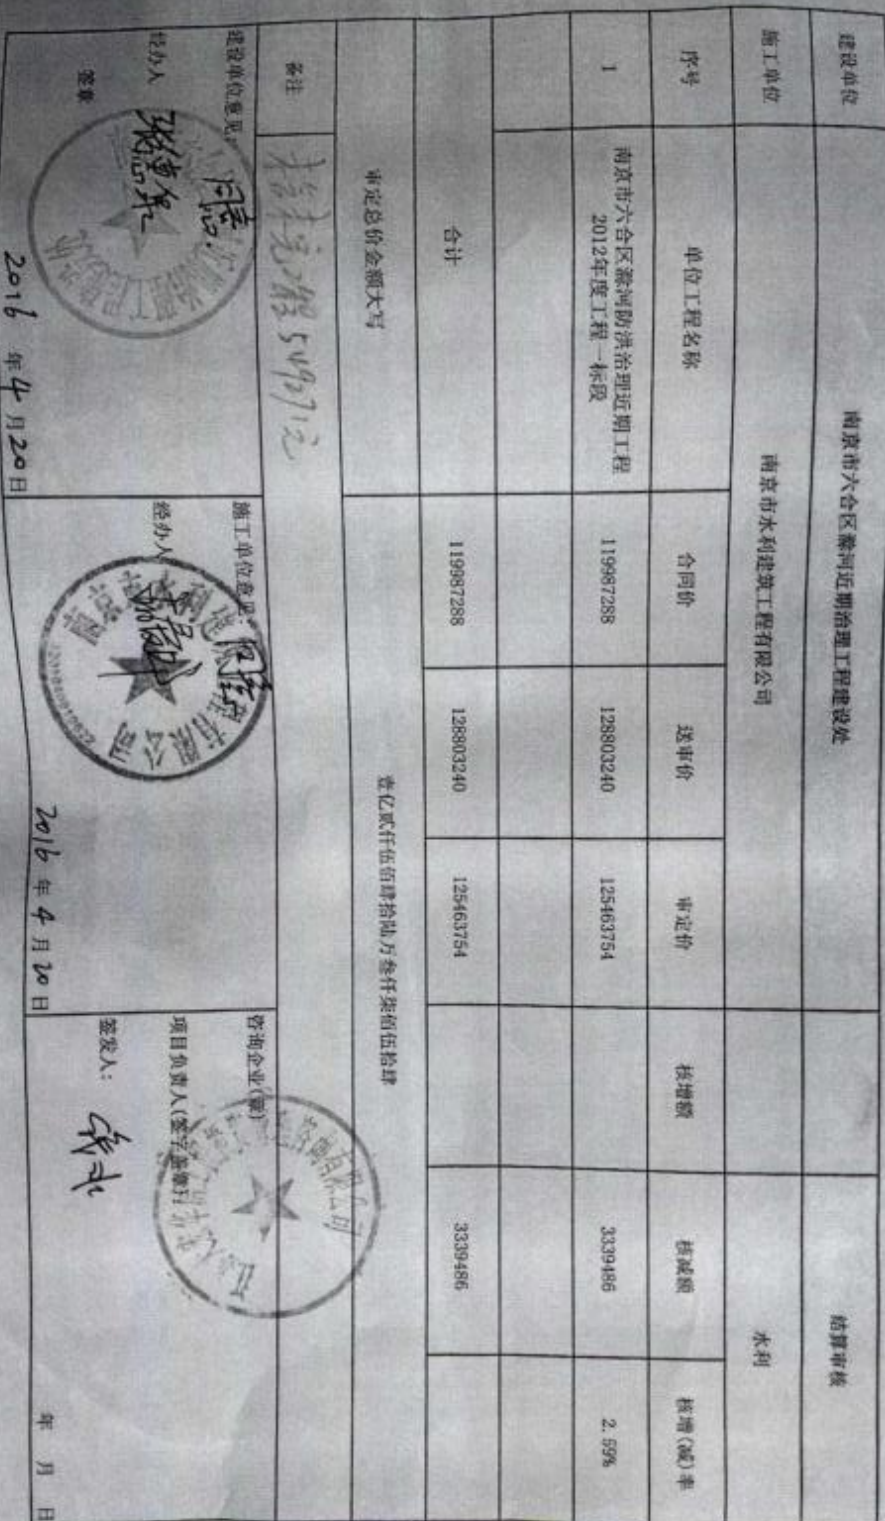 建设单位 南京市六合区滁河近期治理工程建设处 结算审核
施工单位 南京市水利建筑工程有限公司 水利
序号 单位工程名称 合同价 送审价 审定价 核增额 核减额 核增(减)率
1 南京市六合区滁河防洪治理近期工程 119987288 128803240 125463754 3339486 2.59%
2012年度工程一标段
合计 119987288 128803240 125463754 3339486
审定总价金额大写 壹亿贰仟伍佰肆拾陆万叁仟柒佰伍拾肆
备注 549271元
建设单位意见: 同意
经办人
签章
2016年4月20日
施工单位意见: 同意
经办人
2016年4月20日
咨询企业(章)
项目负责人(签字盖章)
签发人:
年 月 日